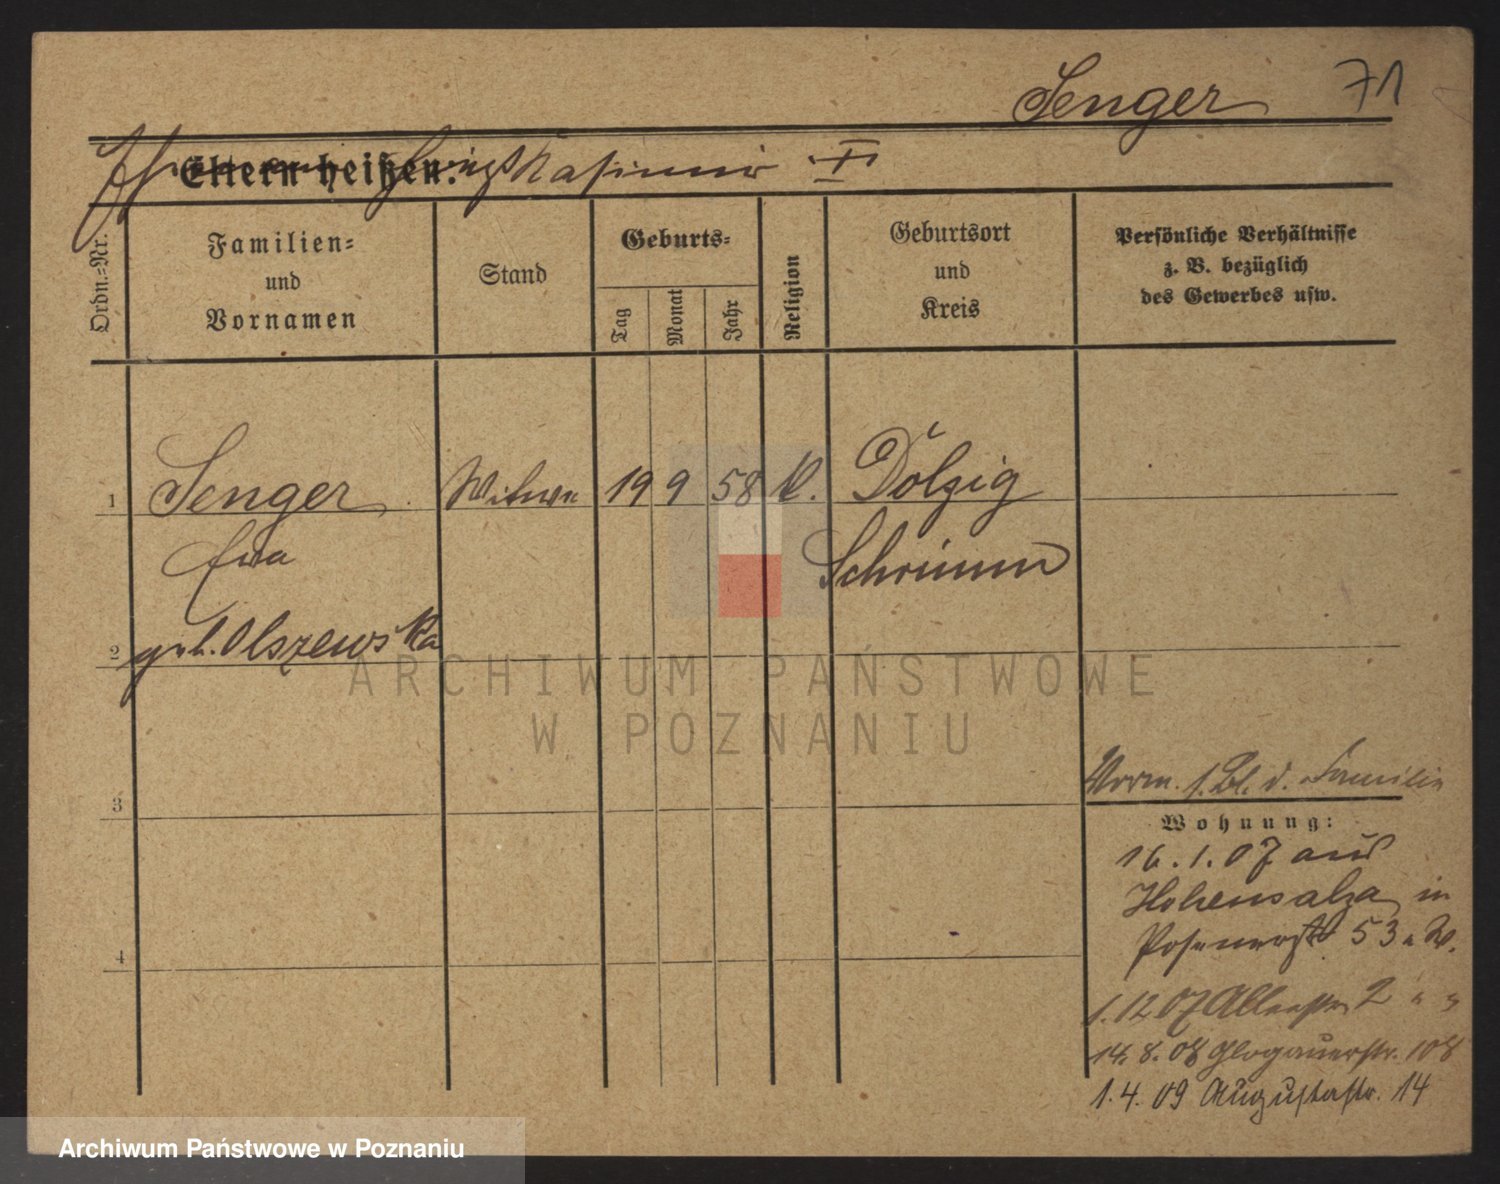 Senger 71
Eltern heißen: Kasimir II
Ordn.-Nr.
Familien-
und
Vornamen
Stand
Geburts-
Tag
Monat
Jahr
Religion
Geburtsort
und
Kreis
Persönliche Verhältnisse
z. B. bezüglich
des Gewerbes usw.
1 Senger Witwe 19 9 58 k. Dolzig
Ewa Schrimm
2 geb. Olszewska
3
4
Vorm. s. Bl. d. Familie
Wohnung:
16.1.07 aus
Hohensalza in
Posenerstr 53 a W.
1.12 07 Alleestr 2 " "
14.8.08 Glogauerstr. 108
1.4.09 Augustastr. 14
ARCHIWUM PAŃSTWOWE
W POZNANIU
Archiwum Państwowe w Poznaniu